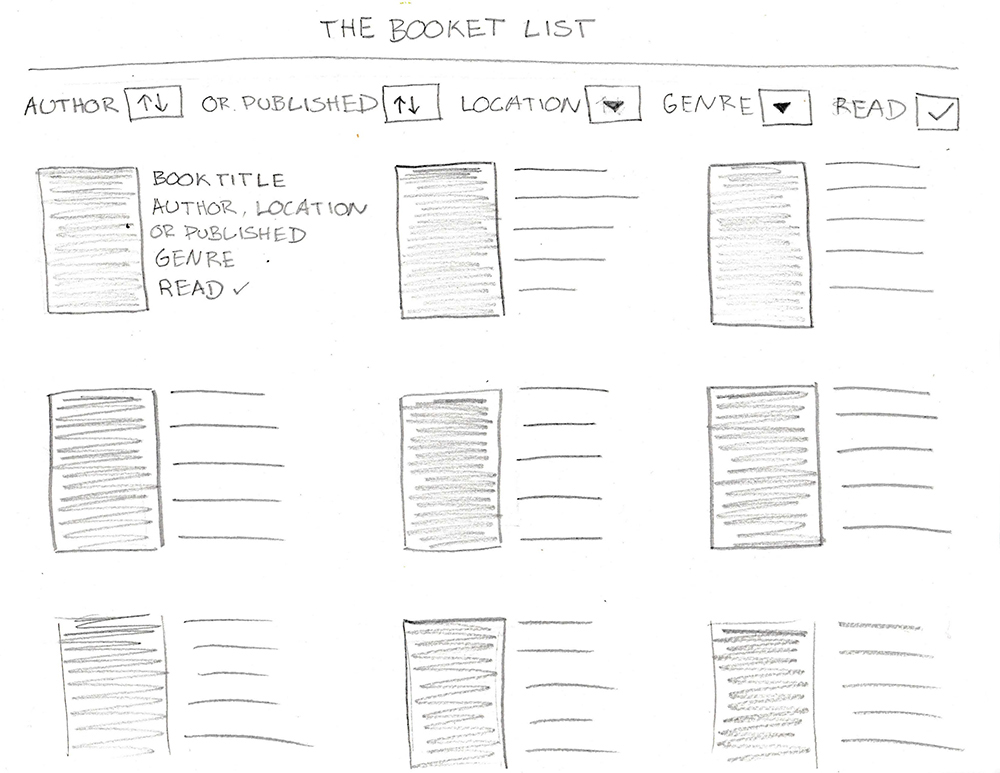 THE BOOKET LIST
AUTHOR ↑↓ OR. PUBLISHED ↑↓ LOCATION ▼ GENRE ▼ READ ✓
BOOK TITLE
AUTHOR, LOCATION
OR PUBLISHED
GENRE
READ ✓